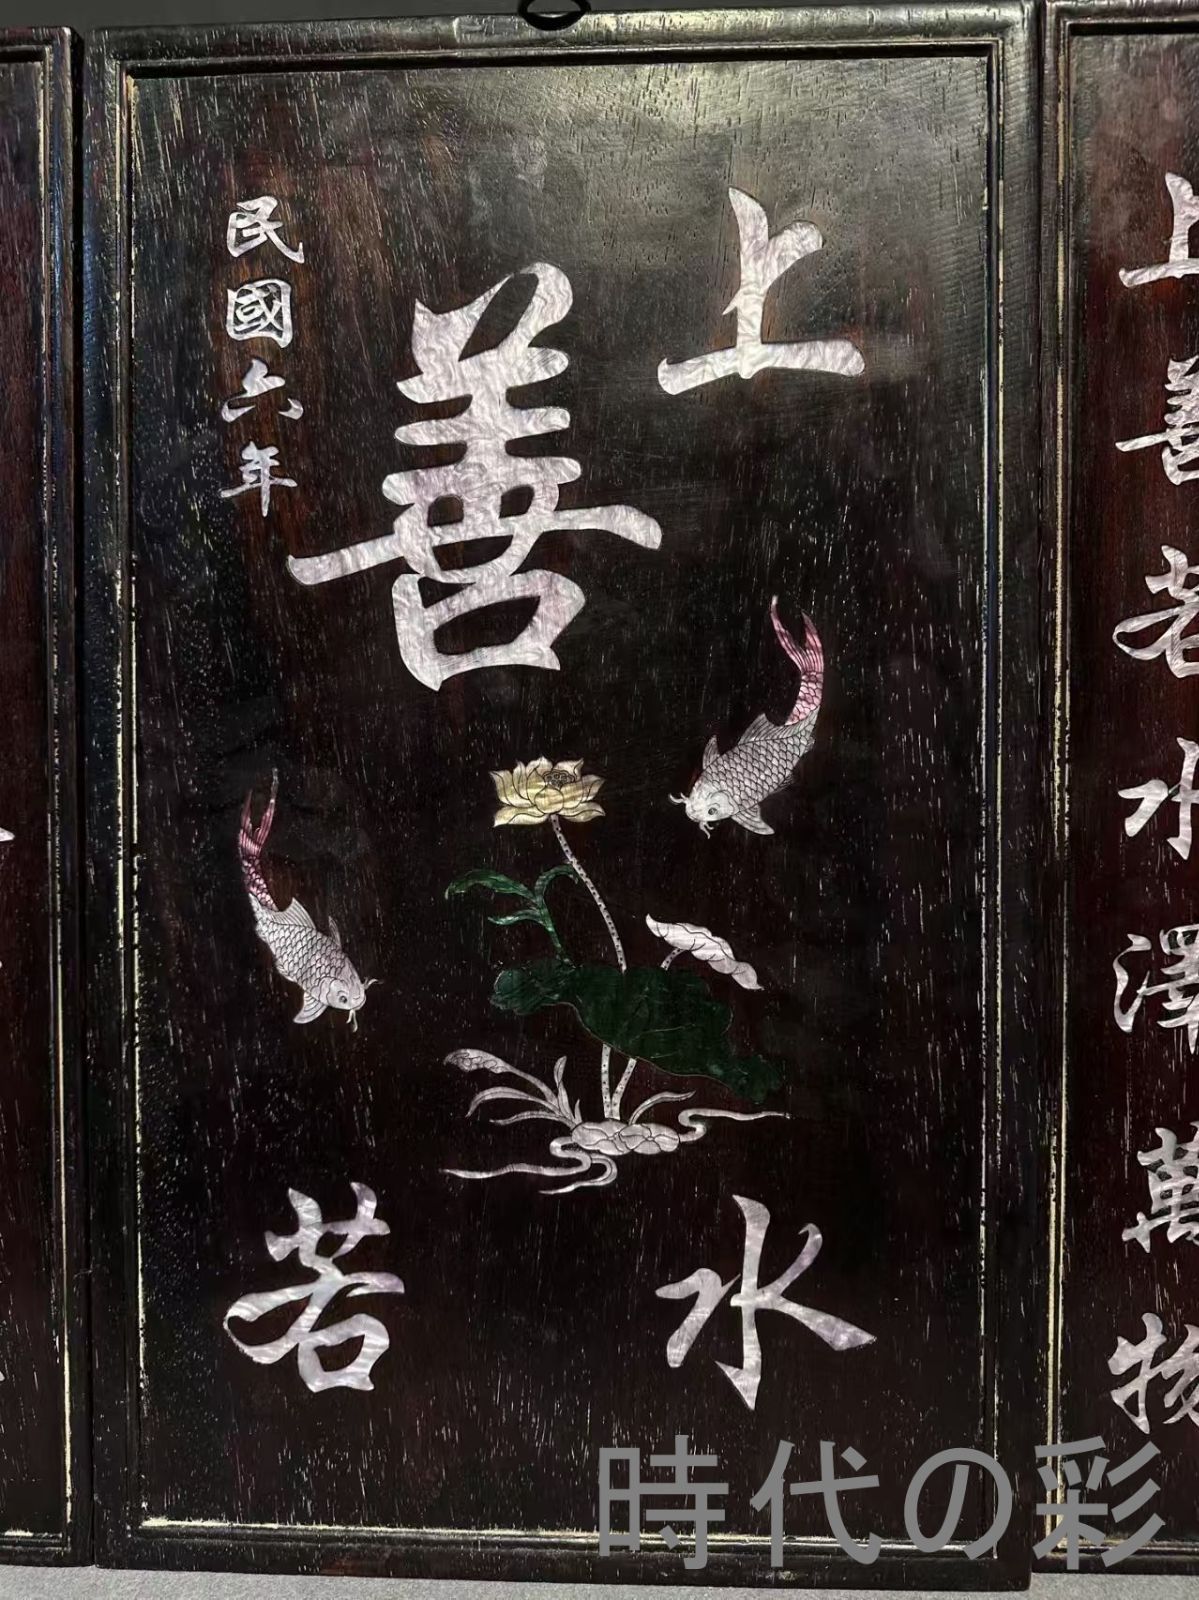 上善
若水
民國六年
上善若水澤萬物
時代の彩